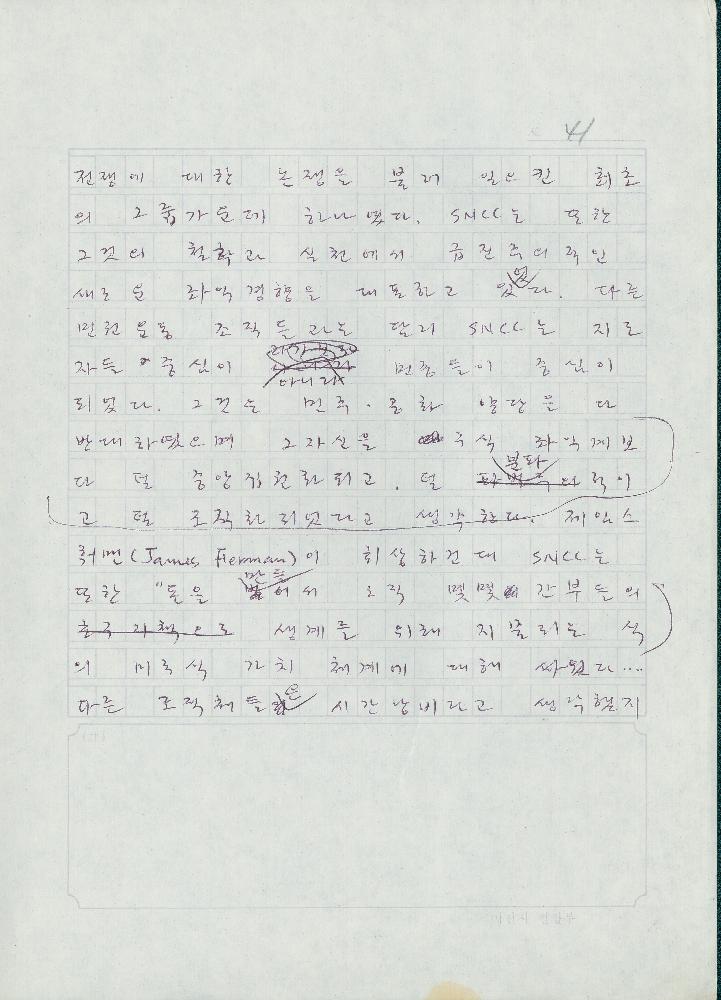 41
전쟁에 대한 논쟁을 불러 일으킨 최초
의 그룹 가운데 하나였다. SNCC는 또한
그것의 철학과 실천에서 급진주의적인
새로운 좌익경향을 대표하고 있었다. 다른
민권운동 조직들과는 달리 SNCC는 지도
자들 중심이 아니라 민중들이 중심이
되었다. 그것은 민주·공화 양당을 다
반대하였으며 그 자신을 구식 좌익계보
다 덜 중앙집권화되고, 덜 분파적이
고 덜 조직화되었다고 생각한다. 제임스
훠먼(James Forman)이 회상하건대 SNCC는
또한 "돈을 만들어서 조직 몇몇 간부들의
생계를 위해 지불하는 식
의 미국식 가치 체계에 대해 싸웠다....
다른 조직체들은 시간낭비라고 생각했지